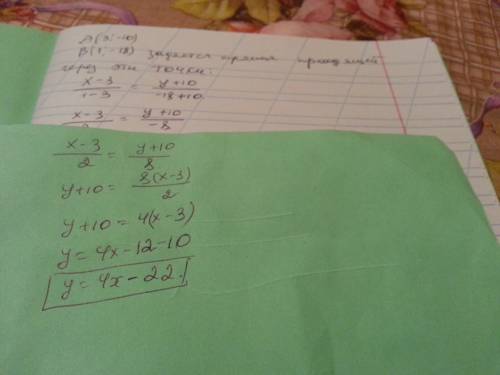 A(3; -10)
B(1; -18) задается прямая
через эти точки:
(x-3)/(1-3) = (y+10)/(-18+10)
x-3 = (y+10)/(-8)
(x-3)/2 = (y+10)/8
y+10 = 8(x-3)/2
y+10 = 4(x-3)
y = 4x-12-10
y = 4x-22.